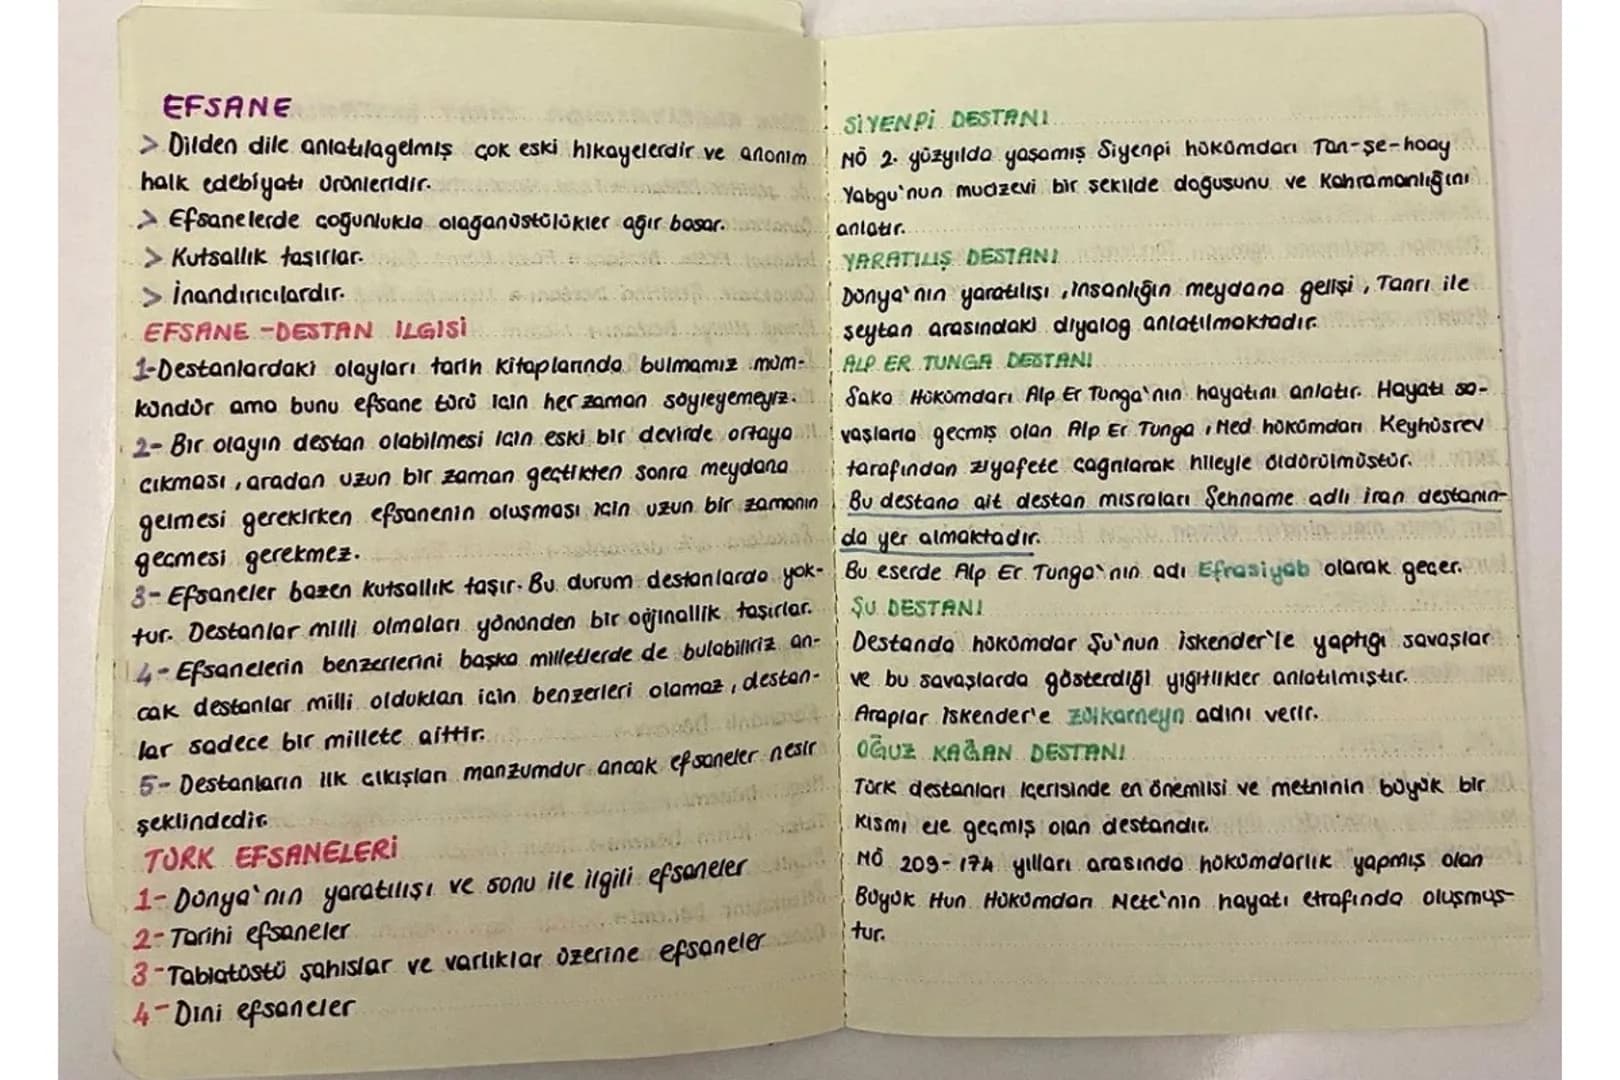 EFSANE
> Dilden dile anlatılagelmiş çok eski hikayelerdir ve anonim
halk edebiyatı ürünleridir.
> Efsanelerde çoğunlukla olağanüstülükler ağır basar.
> Kutsallık taşırlar.
> İnandırıcılardır.
EFSANE - DESTAN İLGİSİ
1-Destanlardaki olayları tarih kitaplarında bulmamız müm-
kündür ama bunu efsane türü için her zaman söyleyemeyiz.
2- Bir olayın destan olabilmesi için eski bir devirde ortaya
çıkması, aradan uzun bir zaman geçtikten sonra meydana
gelmesi gerekirken efsanenin oluşması için uzun bir zamanın
geçmesi gerekmez.
3- Efsaneler bazen kutsallık taşır. Bu durum destanlarda yok-
tur. Destanlar milli olmaları yönünden bir oğjinallik taşırlar.
4- Efsanelerin benzerlerini başka milletlerde de bulabiliriz an-
cak destanlar milli oldukları için benzerleri olamaz, destan-
lar sadece bir millete aittir.
5- Destanların ilk çıkışları manzumdur ancak efsaneler nesir
şeklindedir.
TÜRK EFSANELERİ
1- Dünya'nın yaratılışı ve sonu ile ilgili efsaneler
2- Tarihi efsaneler
3-Tabiatüstü şahıslar ve varlıklar üzerine efsaneler
4- Dini efsaneler
SİYENPİ DESTANI
MÖ 2. yüzyılda yaşamış Siyenpi hükümdarı Tan-şe-hoay
Yabgu'nun mucizevi bir şekilde doğuşunu ve kahramanlığını
anlatır.
YARATILIŞ DESTANI
Dünya'nın yaratılışı, insanlığın meydana gelişi, Tanrı ile
şeytan arasındaki diyalog anlatılmaktadır.
ALP ER TUNGA DESTANI
Saka Hükümdarı Alp Er Tunga'nın hayatını anlatır. Hayatı sa-
vaşlarla geçmiş olan Alp Er Tunga, Med hükümdarı Keyhüsrev
tarafından ziyafete çağrılarak hileyle öldürülmüştür.
Bu destana ait destan mısraları Şehname adlı İran destanın-
da yer almaktadır.
Bu eserde Alp Er Tunga'nın adı Efrasiyab olarak geçer.
ŞU DESTANI
Destanda hükümdar Şu'nun İskender'le yaptığı savaşlar
ve bu savaşlarda gösterdiği yiğitlikler anlatılmıştır.
Araplar İskender'e Zülkarneyn adını verir.
OĞUZ KAĞAN DESTANI
Türk destanları içerisinde en önemlisi ve metninin büyük bir
kısmı ele geçmiş olan destandır.
MÖ 209-174 yılları arasında hükümdarlık yapmış olan
Büyük Hun Hükümdarı Mete'nin hayatı etrafında oluşmuş-
tur.